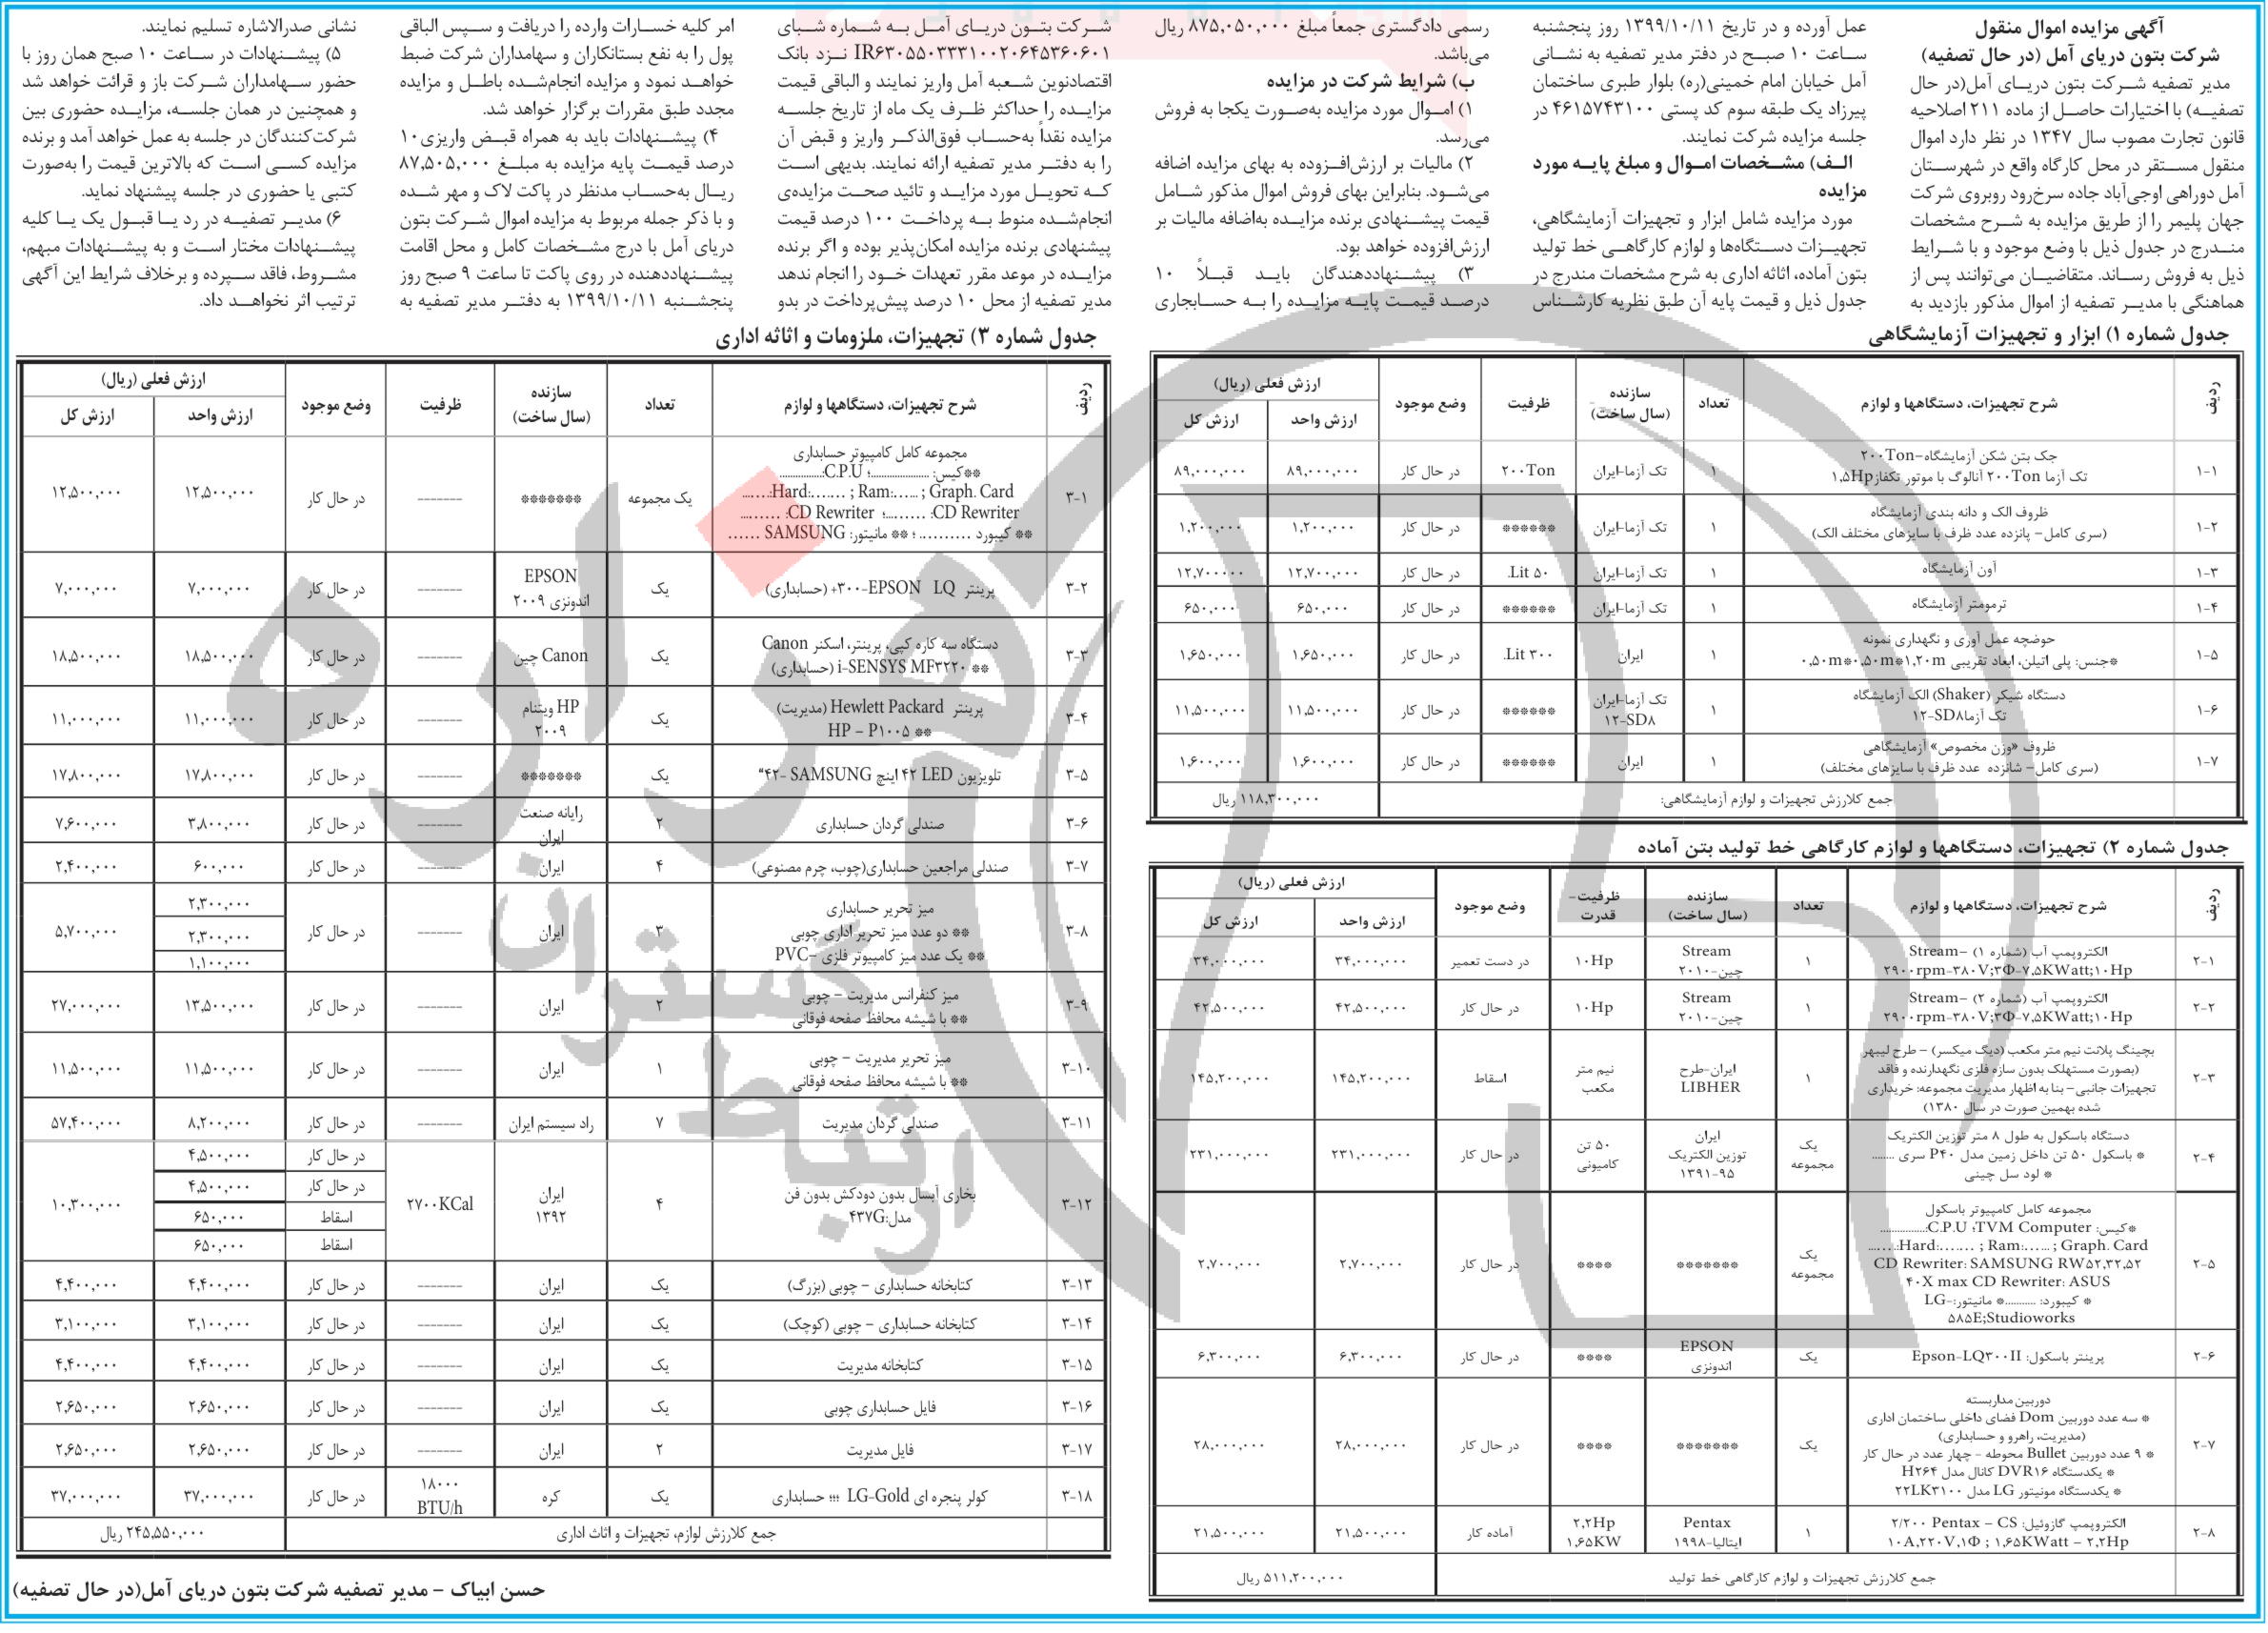 آگهی مزایده اموال منقول
شرکت بتون دریای آمل (در حال تصفیه)
مدیر تصفیه شرکت بتون دریای آمل(در حال
تصفیه) با اختیارات حاصل از ماده ۲۱۱ اصلاحیه
قانون تجارت مصوب سال ۱۳۴۷ در نظر دارد اموال
منقول مستقر در محل کارگاه واقع در شهرستان
آمل دوراهی اوجی‌آباد جاده سرخ‌رود روبروی شرکت
جهان پلیمر را از طریق مزایده به شرح مشخصات
مندرج در جدول ذیل با وضع موجود و با شرایط
ذیل به فروش رساند. متقاضیان می‌توانند پس از
هماهنگی با مدیر تصفیه از اموال مذکور بازدید به
عمل آورده و در تاریخ ۱۳۹۹/۱۰/۱۱ روز پنجشنبه
ساعت ۱۰ صبح در دفتر مدیر تصفیه به نشانی
آمل خیابان امام خمینی(ره) بلوار طبری ساختمان
پیرزاد یک طبقه سوم کد پستی ۴۶۱۵۷۴۳۱۰۰ در
جلسه مزایده شرکت نمایند.
الف) مشخصات اموال و مبلغ پایه مورد
مزایده
مورد مزایده شامل ابزار و تجهیزات آزمایشگاهی،
تجهیزات دستگاه‌ها و لوازم کارگاهی خط تولید
بتون آماده، اثاثه اداری به شرح مشخصات مندرج در
جدول ذیل و قیمت پایه آن طبق نظریه کارشناس
رسمی دادگستری جمعاً مبلغ ۸۷۵,۰۵۰,۰۰۰ ریال
می‌باشد.
ب) شرایط شرکت در مزایده
۱) اموال مورد مزایده به‌صورت یکجا به فروش
می‌رسد.
۲) مالیات بر ارزش‌افزوده به بهای مزایده اضافه
می‌شود. بنابراین بهای فروش اموال مذکور شامل
قیمت پیشنهادی برنده مزایده به‌اضافه مالیات بر
ارزش‌افزوده خواهد بود.
۳) پیشنهاددهندگان باید قبلاً ۱۰
درصد قیمت پایه مزایده را به حساب‌جاری
شرکت بتون دریای آمل به شماره شبای
IR۶۳۰۵۵۰۳۳۳۱۰۰۲۰۶۴۵۳۶۰۶۰۱ نزد بانک
اقتصادنوین شعبه آمل واریز نمایند و الباقی قیمت
مزایده را حداکثر ظرف یک ماه از تاریخ جلسه
مزایده نقداً به‌حساب فوق‌الذکر واریز و قبض آن
را به دفتر مدیر تصفیه ارائه نمایند. بدیهی است
که تحویل مورد مزاید و تائید صحت مزایده‌ی
انجام‌شده منوط به پرداخت ۱۰۰ درصد قیمت
پیشنهادی برنده مزایده امکان‌پذیر بوده و اگر برنده
مزایده در موعد مقرر تعهدات خود را انجام ندهد
مدیر تصفیه از محل ۱۰ درصد پیش‌پرداخت در بدو
امر کلیه خسارات وارده را دریافت و سپس الباقی
پول را به نفع بستانکاران و سهامداران شرکت ضبط
خواهد نمود و مزایده انجام‌شده باطل و مزایده
مجدد طبق مقررات برگزار خواهد شد.
۴) پیشنهادات باید به همراه قبض واریزی۱۰
درصد قیمت پایه مزایده به مبلغ ۸۷,۵۰۵,۰۰۰
ریال به‌حساب مدنظر در پاکت لاک و مهر شده
و با ذکر جمله مربوط به مزایده اموال شرکت بتون
دریای آمل با درج مشخصات کامل و محل اقامت
پیشنهاددهنده در روی پاکت تا ساعت ۹ صبح روز
پنجشنبه ۱۳۹۹/۱۰/۱۱ به دفتر مدیر تصفیه به
نشانی صدرالاشاره تسلیم نمایند.
۵) پیشنهادات در ساعت ۱۰ صبح همان روز با
حضور سهامداران شرکت باز و قرائت خواهد شد
و همچنین در همان جلسه، مزایده حضوری بین
شرکت‌کنندگان در جلسه به عمل خواهد آمد و برنده
مزایده کسی است که بالاترین قیمت را به‌صورت
کتبی یا حضوری در جلسه پیشنهاد نماید.
۶) مدیر تصفیه در رد یا قبول یک یا کلیه
پیشنهادات مختار است و به پیشنهادات مبهم،
مشروط، فاقد سپرده و برخلاف شرایط این آگهی
ترتیب اثر نخواهد داد.
جدول شماره ۱) ابزار و تجهیزات آزمایشگاهی
ردیف شرح تجهیزات، دستگاهها و لوازم تعداد سازنده (سال ساخت) ظرفیت وضع موجود ارزش فعلی (ریال) ارزش واحد ارزش کل
۱-۱ جک بتن شکن آزمایشگاه-۲۰۰Ton تک آزما ۲۰۰Ton آنالوگ با موتور تکفاز۱,۵Hp ۱ تک آزما-ایران ۲۰۰Ton در حال کار ۸۹,۰۰۰,۰۰۰ ۸۹,۰۰۰,۰۰۰
۱-۲ ظروف الک و دانه بندی آزمایشگاه (سری کامل- پانزده عدد ظرف با سایزهای مختلف الک) ۱ تک آزما-ایران ****** در حال کار ۱,۲۰۰,۰۰۰ ۱,۲۰۰,۰۰۰
۱-۳ آون آزمایشگاه ۱ تک آزما-ایران ۵۰ Lit. در حال کار ۱۲,۷۰۰,۰۰۰ ۱۲,۷۰۰۰۰۰
۱-۴ ترمومتر آزمایشگاه ۱ تک آزما-ایران ****** در حال کار ۶۵۰,۰۰۰ ۶۵۰,۰۰۰
۱-۵ حوضچه عمل آوری و نگهداری نمونه *جنس: پلی اتیلن، ابعاد تقریبی ۰,۵۰m*۰,۵۰m*۱,۲۰m ۱ ایران ۳۰۰ Lit. در حال کار ۱,۶۵۰,۰۰۰ ۱,۶۵۰,۰۰۰
۱-۶ دستگاه شیکر (Shaker) الک آزمایشگاه تک آزما۱۲-SD۸ ۱ تک آزما-ایران ۱۲-SD۸ ****** در حال کار ۱۱,۵۰۰,۰۰۰ ۱۱,۵۰۰,۰۰۰
۱-۷ ظروف «وزن مخصوص» آزمایشگاهی (سری کامل- شانزده عدد ظرف با سایزهای مختلف) ۱ ایران ****** در حال کار ۱,۶۰۰,۰۰۰ ۱,۶۰۰,۰۰۰
جمع کلارزش تجهیزات و لوازم آزمایشگاهی: ۱۱۸,۳۰۰,۰۰۰ ریال
جدول شماره ۲) تجهیزات، دستگاهها و لوازم کارگاهی خط تولید بتن آماده
ردیف شرح تجهیزات، دستگاهها و لوازم تعداد سازنده (سال ساخت) ظرفیت- قدرت وضع موجود ارزش فعلی (ریال) ارزش واحد ارزش کل
۲-۱ الکتروپمپ آب (شماره ۱) -Stream ۲۹۰۰rpm-۳۸۰V;۳Φ-۷,۵KWatt;۱۰Hp ۱ Stream چین-۲۰۱۰ ۱۰Hp در دست تعمیر ۳۴,۰۰۰,۰۰۰ ۳۴,۰۰۰,۰۰۰
۲-۲ الکتروپمپ آب (شماره ۲) -Stream ۲۹۰۰rpm-۳۸۰V;۳Φ-۷,۵KWatt;۱۰Hp ۱ Stream چین-۲۰۱۰ ۱۰Hp در حال کار ۴۲,۵۰۰,۰۰۰ ۴۲,۵۰۰,۰۰۰
۲-۳ بچینگ پلانت نیم متر مکعب (دیگ میکسر) - طرح لیبهر (بصورت مستهلک بدون سازه فلزی نگهدارنده و فاقد تجهیزات جانبی- بنا به اظهار مدیریت مجموعه: خریداری شده بهمین صورت در سال ۱۳۸۰) ۱ ایران-طرح LIBHER نیم متر مکعب اسقاط ۱۴۵,۲۰۰,۰۰۰ ۱۴۵,۲۰۰,۰۰۰
۲-۴ دستگاه باسکول به طول ۸ متر توزین الکتریک * باسکول ۵۰ تن داخل زمین مدل P۴۰ سری ........ * لود سل چینی یک مجموعه ایران توزین الکتریک ۱۳۹۱-۹۵ ۵۰ تن کامیونی در حال کار ۲۳۱,۰۰۰,۰۰۰ ۲۳۱,۰۰۰,۰۰۰
۲-۵ مجموعه کامل کامپیوتر باسکول *کیس: TVM Computer؛ C.P.U:................ Hard:....... ; Ram:...... ; Graph. Card:....... CD Rewriter: SAMSUNG RW۵۲,۳۲,۵۲ ۴۰X max CD Rewriter: ASUS * کیبورد: ...........* مانیتور:LG- ۵۸۵E;Studioworks یک مجموعه ******* **** در حال کار ۲,۷۰۰,۰۰۰ ۲,۷۰۰,۰۰۰
۲-۶ پرینتر باسکول: Epson-LQ۳۰۰II یک EPSON اندونزی **** در حال کار ۶,۳۰۰,۰۰۰ ۶,۳۰۰,۰۰۰
۲-۷ دوربین مداربسته * سه عدد دوربین Dom فضای داخلی ساختمان اداری (مدیریت، راهرو و حسابداری) * ۹ عدد دوربین Bullet محوطه - چهار عدد در حال کار * یکدستگاه DVR۱۶ کانال مدل H۲۶۴ * یکدستگاه مونیتور LG مدل ۲۲LK۳۱۰۰ یک ******* **** در حال کار ۲۸,۰۰۰,۰۰۰ ۲۸,۰۰۰,۰۰۰
۲-۸ الکتروپمپ گازوئیل: ۲/۲۰۰ Pentax – CS ۱۰A,۲۲۰V,۱Φ ; ۱,۶۵KWatt – ۲,۲Hp ۱ Pentax ایتالیا-۱۹۹۸ ۲,۲Hp ۱,۶۵KW آماده کار ۲۱,۵۰۰,۰۰۰ ۲۱,۵۰۰,۰۰۰
جمع کلارزش تجهیزات و لوازم کارگاهی خط تولید ۵۱۱,۲۰۰,۰۰۰ ریال
جدول شماره ۳) تجهیزات، ملزومات و اثاثه اداری
ردیف شرح تجهیزات، دستگاهها و لوازم تعداد سازنده (سال ساخت) ظرفیت وضع موجود ارزش فعلی (ریال) ارزش واحد ارزش کل
۳-۱ مجموعه کامل کامپیوتر حسابداری **کیس: ....................؛ C.P.U:.............. Hard:....... ; Ram:...... ; Graph. Card:....... CD Rewriter: .......؛ CD Rewriter: ....... ** کیبورد .......... ؛ ** مانیتور: SAMSUNG ...... یک مجموعه ******* ------- در حال کار ۱۲,۵۰۰,۰۰۰ ۱۲,۵۰۰,۰۰۰
۳-۲ پرینتر EPSON LQ-۳۰۰+ (حسابداری) یک EPSON اندونزی ۲۰۰۹ ------- در حال کار ۷,۰۰۰,۰۰۰ ۷,۰۰۰,۰۰۰
۳-۳ دستگاه سه کاره کپی، پرینتر، اسکنر Canon ** i-SENSYS MF۳۲۲۰ (حسابداری) یک Canon چین ------- در حال کار ۱۸,۵۰۰,۰۰۰ ۱۸,۵۰۰,۰۰۰
۳-۴ پرینتر Hewlett Packard (مدیریت) ** HP – P۱۰۰۵ یک HP ویتنام ۲۰۰۹ ------- در حال کار ۱۱,۰۰۰,۰۰۰ ۱۱,۰۰۰,۰۰۰
۳-۵ تلویزیون LED ۴۲ اینچ SAMSUNG -۴۲“ یک ******* ------- در حال کار ۱۷,۸۰۰,۰۰۰ ۱۷,۸۰۰,۰۰۰
۳-۶ صندلی گردان حسابداری ۲ رایانه صنعت ایران ------- در حال کار ۳,۸۰۰,۰۰۰ ۷,۶۰۰,۰۰۰
۳-۷ صندلی مراجعین حسابداری(چوب، چرم مصنوعی) ۴ ایران ------- در حال کار ۶۰۰,۰۰۰ ۲,۴۰۰,۰۰۰
۳-۸ میز تحریر حسابداری ** دو عدد میز تحریر اداری چوبی ** یک عدد میز کامپیوتر فلزی -PVC ۳ ایران ------- در حال کار ۲,۳۰۰,۰۰۰ ۲,۳۰۰,۰۰۰ ۱,۱۰۰,۰۰۰ ۵,۷۰۰,۰۰۰
۳-۹ میز کنفرانس مدیریت - چوبی ** با شیشه محافظ صفحه فوقانی ۲ ایران ------- در حال کار ۱۳,۵۰۰,۰۰۰ ۲۷,۰۰۰,۰۰۰
۳-۱۰ میز تحریر مدیریت - چوبی ** با شیشه محافظ صفحه فوقانی ۱ ایران ------- در حال کار ۱۱,۵۰۰,۰۰۰ ۱۱,۵۰۰,۰۰۰
۳-۱۱ صندلی گردان مدیریت ۷ راد سیستم ایران ------- در حال کار ۸,۲۰۰,۰۰۰ ۵۷,۴۰۰,۰۰۰
۳-۱۲ بخاری آبسال بدون دودکش بدون فن مدل:۴۳۷G ۴ ایران ۱۳۹۲ ۲۷۰۰KCal در حال کار ۴,۵۰۰,۰۰۰ در حال کار ۴,۵۰۰,۰۰۰ اسقاط ۶۵۰,۰۰۰ اسقاط ۶۵۰,۰۰۰ ۱۰,۳۰۰,۰۰۰
۳-۱۳ کتابخانه حسابداری - چوبی (بزرگ) یک ایران ------- در حال کار ۴,۴۰۰,۰۰۰ ۴,۴۰۰,۰۰۰
۳-۱۴ کتابخانه حسابداری - چوبی (کوچک) یک ایران ------- در حال کار ۳,۱۰۰,۰۰۰ ۳,۱۰۰,۰۰۰
۳-۱۵ کتابخانه مدیریت یک ایران ------- در حال کار ۴,۴۰۰,۰۰۰ ۴,۴۰۰,۰۰۰
۳-۱۶ فایل حسابداری چوبی یک ایران ------- در حال کار ۲,۶۵۰,۰۰۰ ۲,۶۵۰,۰۰۰
۳-۱۷ فایل مدیریت ۲ ایران ------- در حال کار ۲,۶۵۰,۰۰۰ ۲,۶۵۰,۰۰۰
۳-۱۸ کولر پنجره ای LG-Gold ؛؛؛ حسابداری یک کره ۱۸۰۰۰ BTU/h در حال کار ۳۷,۰۰۰,۰۰۰ ۳۷,۰۰۰,۰۰۰
جمع کلارزش لوازم، تجهیزات و اثاث اداری ۲۴۵,۵۵۰,۰۰۰ ریال
حسن ابیاک - مدیر تصفیه شرکت بتون دریای آمل(در حال تصفیه)
هزاره
ارتباط گستران